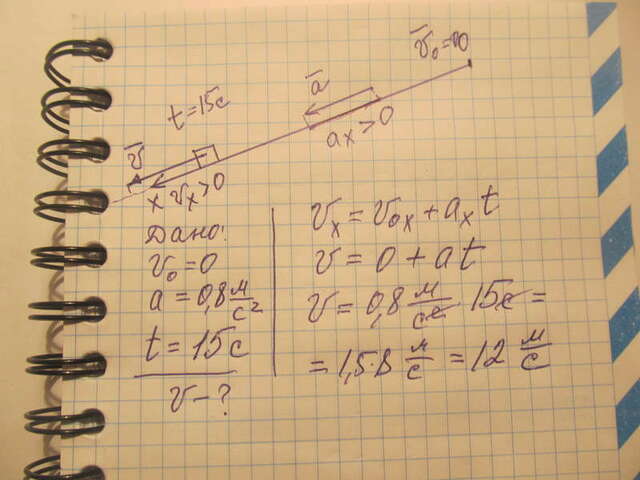 v̄₀=0
ā
t=15с
aₓ>0
v̄
x vₓ>0
Дано:
v₀=0
a=0,8 м/с²
t=15с
v-?
vₓ=v₀ₓ+aₓt
v=0+at
v=0,8 м/с² · 15с=
=1,5·8 м/с=12 м/с